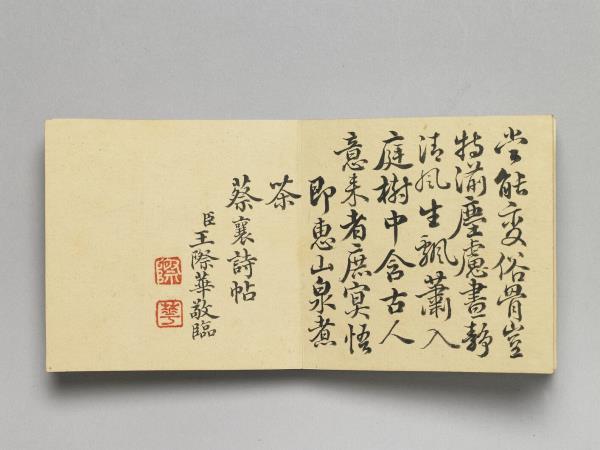 當能變俗骨豈
特湔塵慮晝靜
清風生飄蕭入
庭樹中含古人
意来者庶冥悟
即惠山泉煮
茶
蔡襄詩帖
臣王際華敬臨
際
華